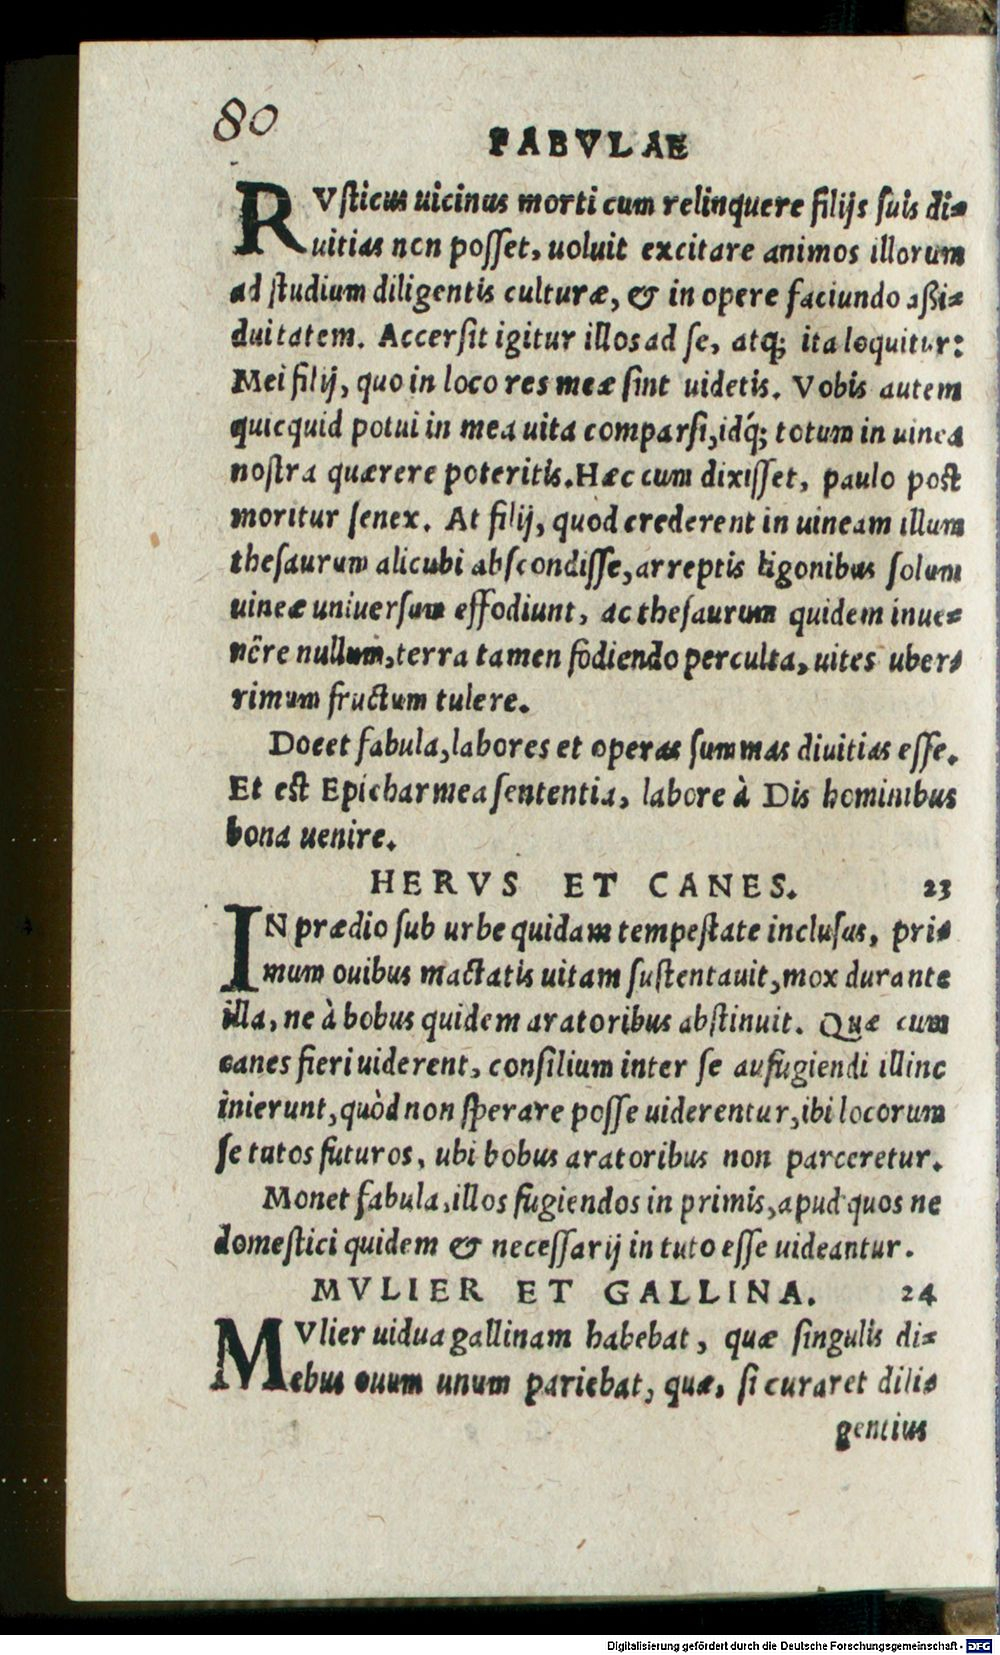 80
FABVLAE
RVſticus uicinus morti cum relinquere filijs ſuis di-
uitias non poſſet, uoluit excitare animos illorum
ad ſtudium diligentis culturæ, & in opere faciundo aſsi-
duitatem. Accerſit igitur illos ad ſe, atq; ita loquitur:
Mei filij, quo in loco res meæ ſint uidetis. Vobis autem
quicquid potui in mea uita comparſi, idq́; totum in uinea
noſtra quærere poteritis. Hæc cum dixiſſet, paulo poſt
moritur ſenex. At filij, quod crederent in uineam illum
theſaurum alicubi abſcondiſſe, arreptis ligonibus ſolum
uineæ uniuerſum effodiunt, ac theſaurum quidem inue-
nêre nullum, terra tamen fodiendo perculta, uites uber-
rimum fructum tulere.
Docet fabula, labores et operas ſummas diuitias eſſe.
Et eſt Epicharmea ſententia, labore à Dis hominibus
bona uenire.
HERVS ET CANES. 23
IN prædio ſub urbe quidam tempeſtate incluſus, pri-
mum ouibus mactatis uitam ſuſtentauit, mox durante
illa, ne à bobus quidem aratoribus abſtinuit. Quæ cum
canes fieri uiderent, conſilium inter ſe aufugiendi illinc
inierunt, quòd non ſperare poſſe uiderentur, ibi locorum
ſe tutos futuros, ubi bobus aratoribus non parceretur.
Monet fabula, illos fugiendos in primis, apud quos ne
domeſtici quidem & neceſſarij in tuto eſſe uideantur.
MVLIER ET GALLINA. 24
MVlier uidua gallinam habebat, quæ ſingulis di-
ebus ouum unum pariebat, quæ, ſi curaret dili-
gentius
Digitalisierung gefördert durch die Deutsche Forschungsgemeinschaft - DFG